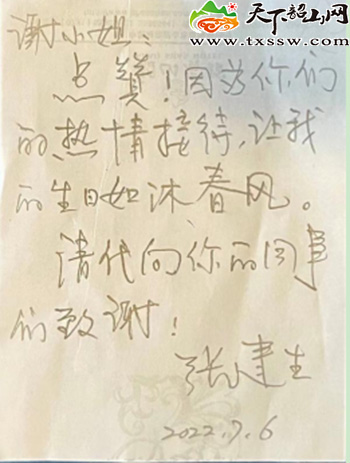 天下韶山网
www.txssw.com
谢小姐：
点赞！因为你们
的热情接待，让我
的生日如沐春风。
请代向你的同事
们致谢！
张建生
2022.7.6